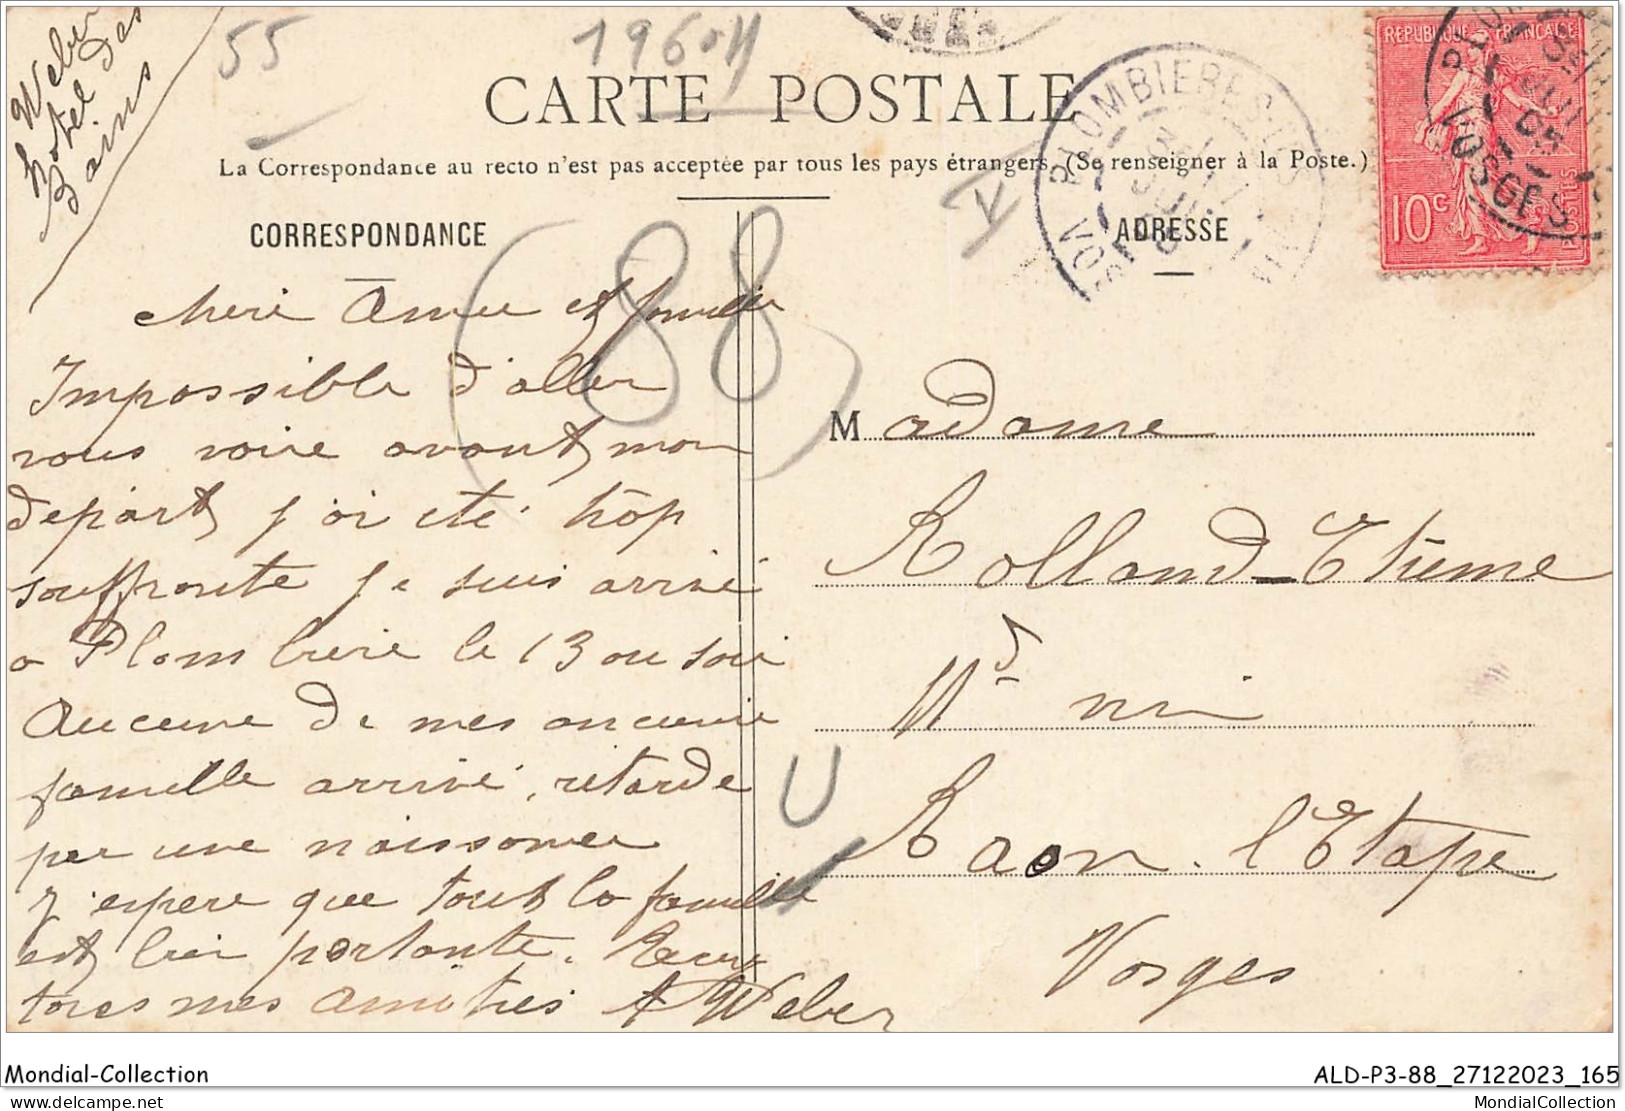 Weber
hotel des
Bains
55
19601
CARTE POSTALE
La Correspondance au recto n'est pas acceptée par tous les pays étrangers. (Se renseigner à la Poste.)
REPUBLIQUE FRANÇAISE
10c
POSTES
PLOMBIERES-LES
VOSGES
CORRESPONDANCE
ADRESSE
(88)
cheri Amie et famille
Impossible d'aller
vous voire avant mon
départ j'ai eté trop
souffrante je suis arrivé
a Plombiere le 13 au soir
Aucune de mes ancienne
famille arrivé, retarde
par une naissance
J'espere que tout la famille
est bien portante.
tous mes amitiés A Weber
Madame
Rolland-Etienne
Md
Raon. l'Etape
Vosges
U
Mondial-Collection
ALD-P3-88_27122023_165
www.delcampe.net
MondialCollection